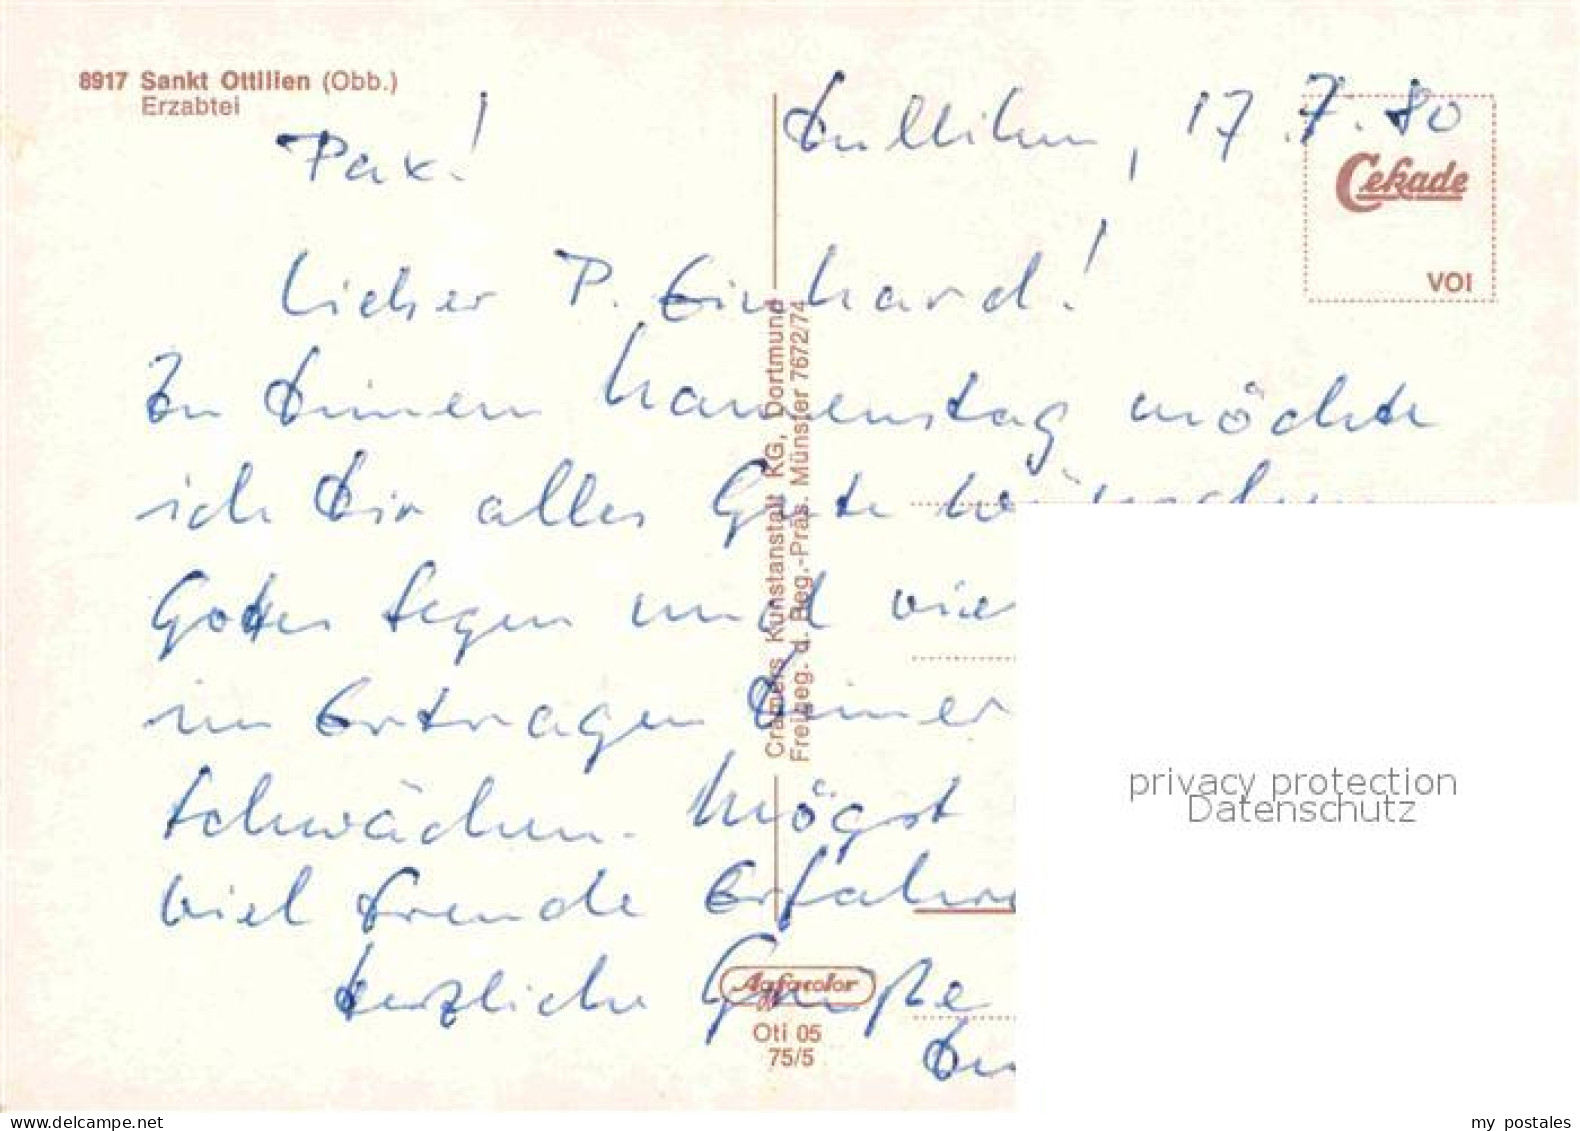 8917 Sankt Ottilien (Obb.)
Erzabtei
Pax!
17.7.80
Cekade
VOI
Lieber P. Einhard!
Zu Deinem Namenstag möchte
ich Dir alles Gute wünschen
Gottes Segen und
im Ertragen Deiner
Schwächen. Mögst
viel Freude
Herzliche Grüße
Cramers Kunstanstalt KG, Dortmund
Freigeg. d. Reg.-Präs. Münster 7672/74
Agfacolor
Oti 05
75/5
privacy protection
Datenschutz
my postales